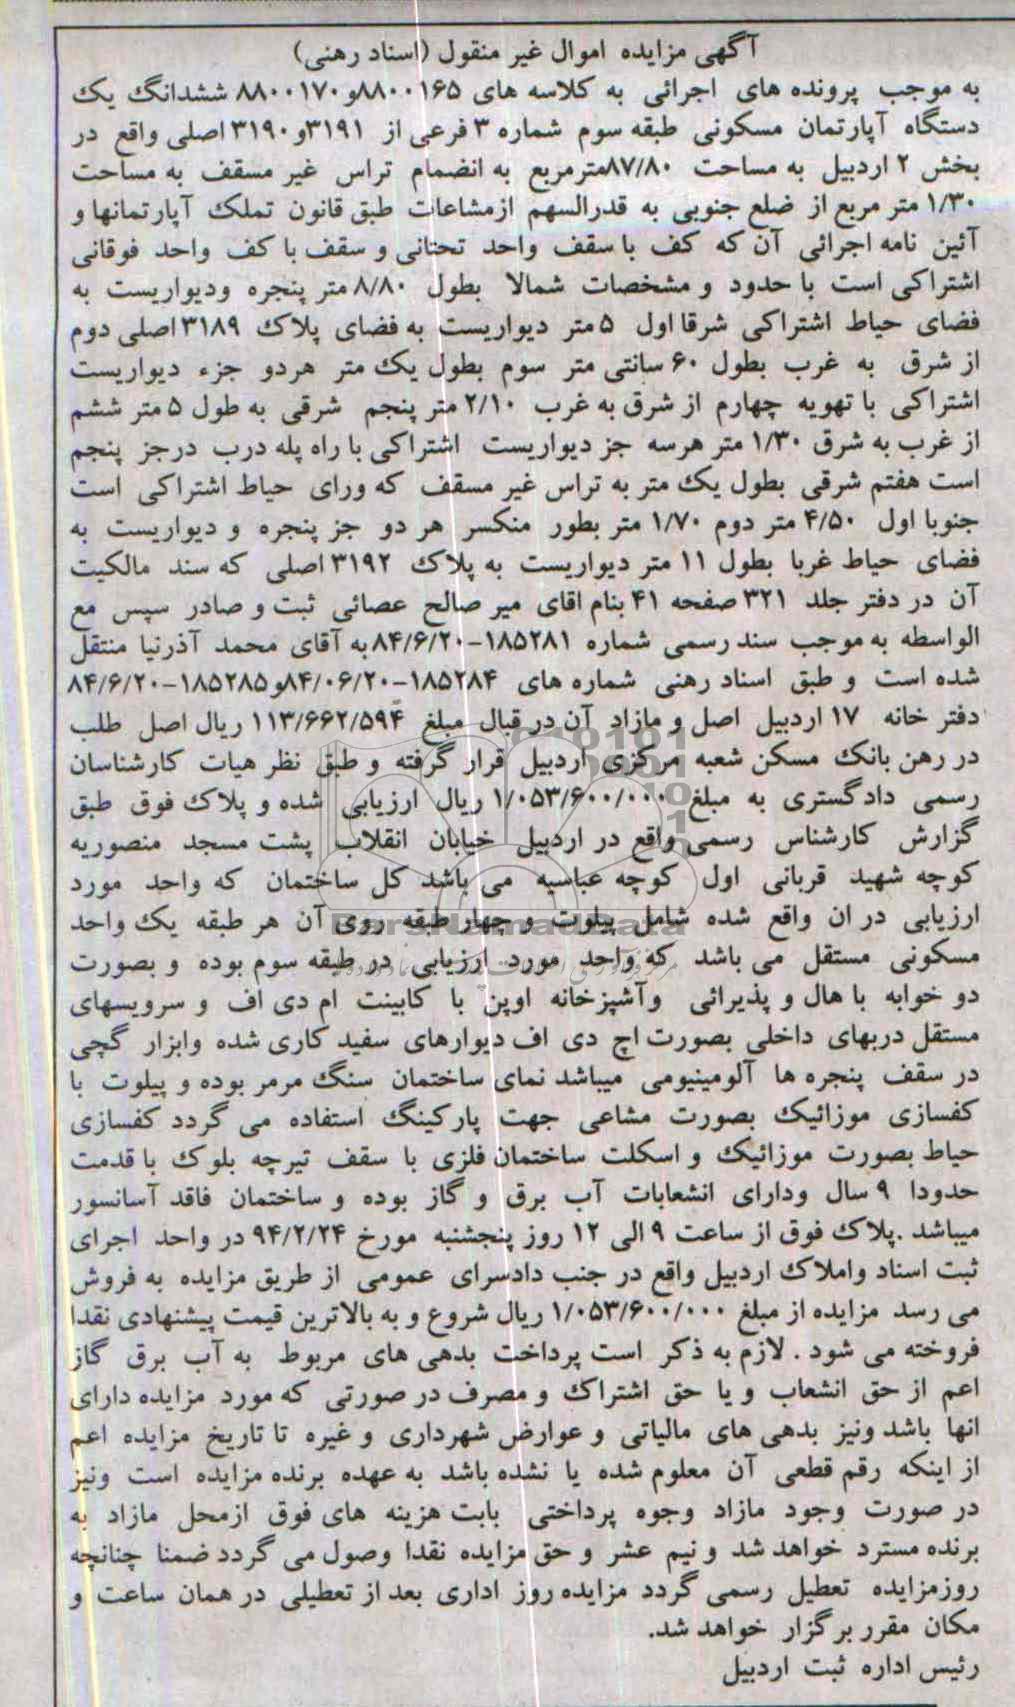 آگهی مزایده اموال غیر منقول (اسناد رهنی)
به موجب پرونده های اجرائی به کلاسه های ۸۸۰۰۱۶۵و۸۸۰۰۱۷۰ ششدانگ یک
دستگاه آپارتمان مسکونی طبقه سوم شماره ۳ فرعی از ۳۱۹۱و۳۱۹۰ اصلی واقع در
بخش ۲ اردبیل به مساحت ۸۷/۸۰مترمربع به انضمام تراس غیر مسقف به مساحت
۱/۳۰ متر مربع از ضلع جنوبی به قدرالسهم ازمشاعات طبق قانون تملک آپارتمانها و
آئین نامه اجرائی آن که کف با سقف واحد تحتانی و سقف با کف واحد فوقانی
اشتراکی است با حدود و مشخصات شمالا بطول ۸/۸۰ متر پنجره ودیواریست به
فضای حیاط اشتراکی شرقا اول ۵ متر دیواریست به فضای پلاک ۳۱۸۹ اصلی دوم
از شرق به غرب بطول ۶۰ سانتی متر سوم بطول یک متر هردو جزء دیواریست
اشتراکی با تهویه چهارم از شرق به غرب ۲/۱۰ متر پنجم شرقی به طول ۵ متر ششم
از غرب به شرق ۱/۳۰ متر هرسه جز دیواریست اشتراکی با راه پله درب درجز پنجم
است هفتم شرقی بطول یک متر به تراس غیر مسقف که ورای حیاط اشتراکی است
جنوبا اول ۴/۵۰ متر دوم ۱/۷۰ متر بطور منکسر هر دو جز پنجره و دیواریست به
فضای حیاط غربا بطول ۱۱ متر دیواریست به پلاک ۳۱۹۲ اصلی که سند مالکیت
آن در دفتر جلد ۳۲۱ صفحه ۴۱ بنام اقای میر صالح عصائی ثبت و صادر سپس مع
الواسطه به موجب سند رسمی شماره ۱۸۵۲۸۱-۸۴/۶/۲۰به آقای محمد آذرنیا منتقل
شده است و طبق اسناد رهنی شماره های ۱۸۵۲۸۴-۸۴/۰۶/۲۰و۱۸۵۲۸۵-۸۴/۶/۲۰
دفتر خانه ۱۷ اردبیل اصل و مازاد آن در قبال مبلغ ۱۱۳/۶۶۲/۵۹۴ ریال اصل طلب
در رهن بانک مسکن شعبه مرکزی اردبیل قرار گرفته و طبق نظر هیات کارشناسان
رسمی دادگستری به مبلغ ۱/۰۵۳/۶۰۰/۰۰۰ ریال ارزیابی شده و پلاک فوق طبق
گزارش کارشناس رسمی واقع در اردبیل خیابان انقلاب پشت مسجد منصوریه
کوچه شهید قربانی اول کوچه عباسیه می باشد کل ساختمان که واحد مورد
ارزیابی در ان واقع شده شامل پیلوت و چهار طبقه روی آن هر طبقه یک واحد
مسکونی مستقل می باشد که واحد مورد ارزیابی در طبقه سوم بوده و بصورت
دو خوابه با هال و پذیرائی وآشپزخانه اوپن با کابینت ام دی اف و سرویسهای
مستقل دربهای داخلی بصورت اچ دی اف دیوارهای سفید کاری شده وابزار گچی
در سقف پنجره ها آلومینیومی میباشد نمای ساختمان سنگ مرمر بوده و پیلوت با
کفسازی موزائیک بصورت مشاعی جهت پارکینگ استفاده می گردد کفسازی
حیاط بصورت موزائیک و اسکلت ساختمان فلزی با سقف تیرچه بلوک با قدمت
حدودا ۹ سال ودارای انشعابات آب برق و گاز بوده و ساختمان فاقد آسانسور
میباشد .پلاک فوق از ساعت ۹ الی ۱۲ روز پنجشنبه مورخ ۹۴/۲/۲۴ در واحد اجرای
ثبت اسناد واملاک اردبیل واقع در جنب دادسرای عمومی از طریق مزایده به فروش
می رسد مزایده از مبلغ ۱/۰۵۳/۶۰۰/۰۰۰ ریال شروع و به بالاترین قیمت پیشنهادی نقدا
فروخته می شود . لازم به ذکر است پرداخت بدهی های مربوط به آب برق گاز
اعم از حق انشعاب و یا حق اشتراک و مصرف در صورتی که مورد مزایده دارای
انها باشد ونیز بدهی های مالیاتی و عوارض شهرداری و غیره تا تاریخ مزایده اعم
از اینکه رقم قطعی آن معلوم شده یا نشده باشد به عهده برنده مزایده است ونیز
در صورت وجود مازاد وجوه پرداختی بابت هزینه های فوق ازمحل مازاد به
برنده مسترد خواهد شد و نیم عشر و حق مزایده نقدا وصول می گردد ضمنا چنانچه
روزمزایده تعطیل رسمی گردد مزایده روز اداری بعد از تعطیلی در همان ساعت و
مکان مقرر برگزار خواهد شد.
رئیس اداره ثبت اردبیل